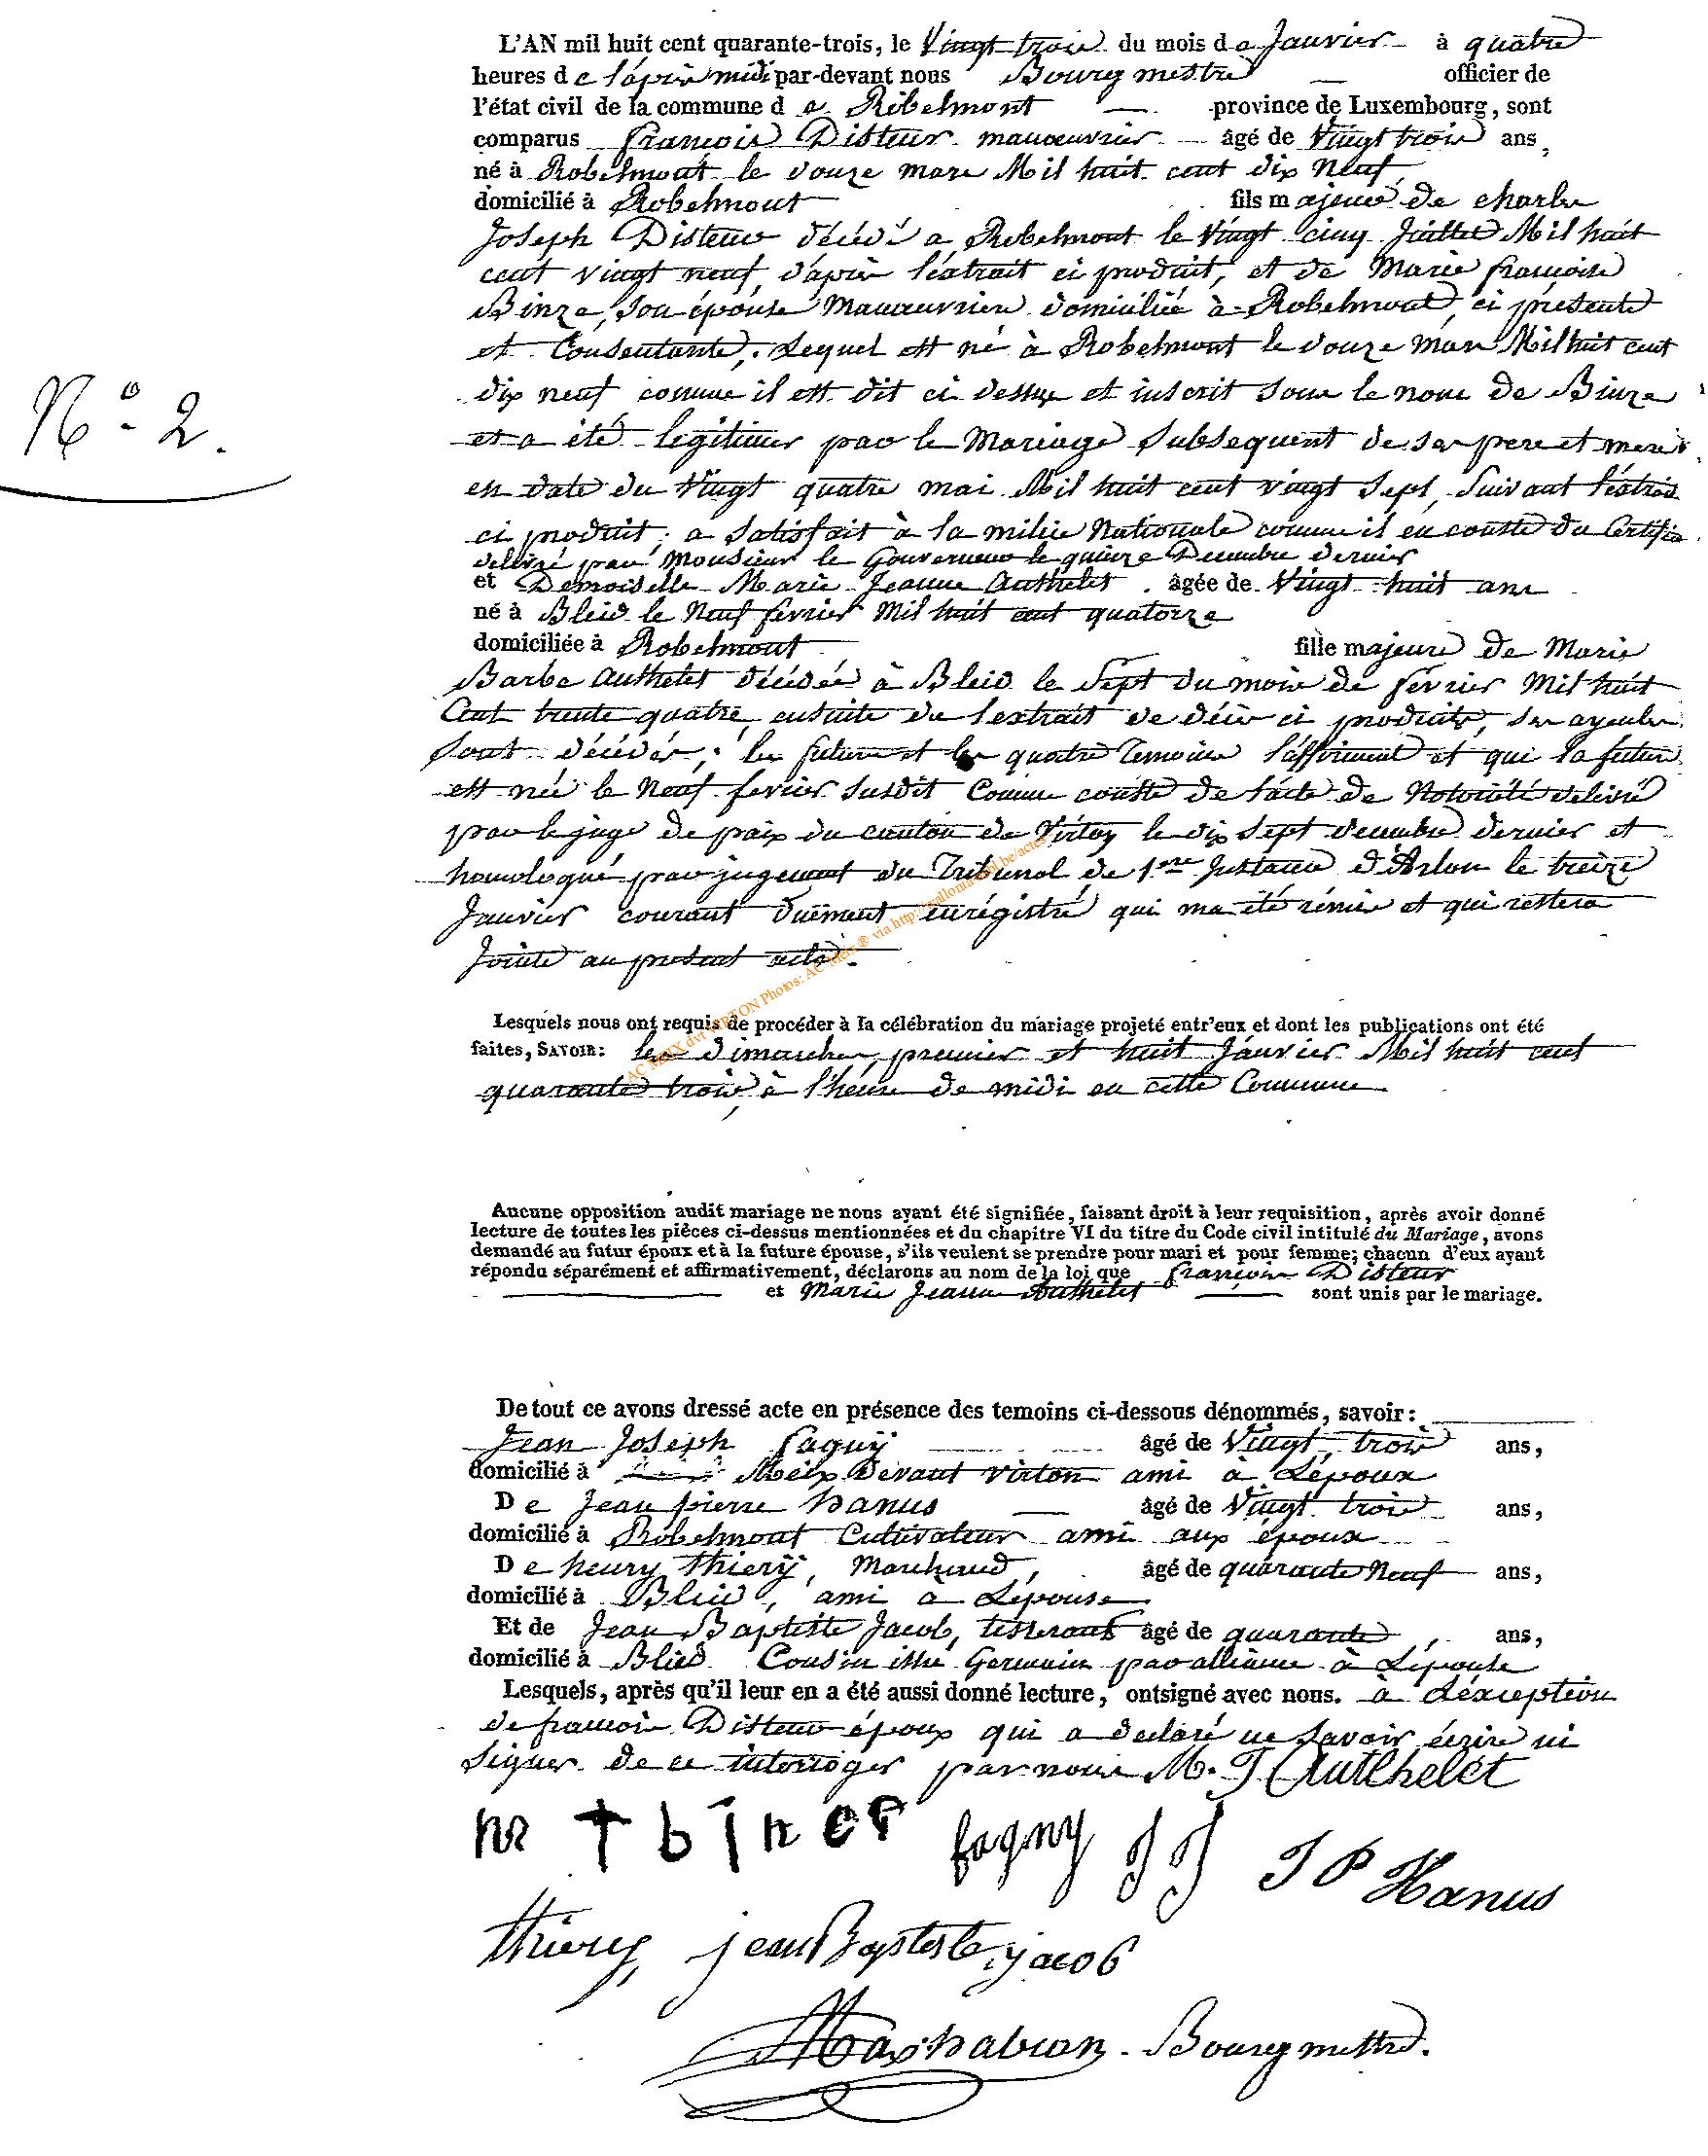 L'AN mil huit cent quarante-trois, le Vingt trois du mois de Janvier à quatre
heures de l'après midi par-devant nous Bourgmestre officier de
l'état civil de la commune de Robelmont province de Luxembourg, sont
comparus françois Disteur manoeuvrier âgé de Vingt trois ans,
né à Robelmont le douze mars Mil huit cent dix Neuf
domicilié à Robelmont fils majeur de charles
Joseph Disteur décédé a Robelmont le Vingt cinq Juillet Mil huit
cent vingt neuf, d'après l'extrait ci produit, et de Marie françoise
Binze, son épouse Manoeuvrière domiciliée à Robelmont, ci présente
et Consentante, Lequel est né à Robelmont le douze Mars Mil huit cent
dix neuf comme il est dit ci dessus et inscrit sous le nom de Binze
et a été légitimer par le Mariage subsequent de ses pere et mere
en date du Vingt quatre mai Mil huit cent vingt Sept, Suivant l'extrai
ci produit, a Satisfait à la milice Nationale comme il en conste du Certifica
delivré par Monsieur le Gouverneur le quinze Decembre dernier
et Demoiselle Marie Jeanne Authelet âgée de Vingt huit ans
né à Bleid le Neuf fevrier Mil huit cent quatorze
domiciliée à Robelmont fille majeure de Marie
Barbe Authelet décédée à Bleid le Sept du mois de fevrier Mil huit
Cent trente quatre, ensuite de l'extrait de décès ci produits, ses ayeules
sont décédés; les future et les quatre Temoins l'affirment et que la future
est née le Neuf fevrier susdit Comme conste de l'acte de Notoriété delivré
par le juge de paix du canton de Virton le dix Sept decembre dernier et
homologué par jugement du Tribunal de 1ere Instance d'Arlon le treize
Janvier courant duement enrégistré qui ma été rémis et qui restera
Jointe au present acte.
AC MEIX dvt VIRTON Photos: AC Meix® via http://
Lesquels nous ont requis de procéder à la célébration du mariage projeté entr'eux et dont les publications ont été
faites, SAVOIR: les dimanches, premier et huit Janvier Mil huit cent
quarante trois, à l'heure de midi en cette Commune
Aucune opposition audit mariage ne nous ayant été signifiée, faisant droit à leur requisition, après avoir donné
lecture de toutes les pièces ci-dessus mentionnées et du chapitre VI du titre du Code civil intitulé du Mariage, avons
demandé au futur époux et à la future épouse, s'ils veulent se prendre pour mari et pour femme; chacun d'eux ayant
répondu séparément et affirmativement, déclarons au nom de la loi que françois Disteur
et Marie Jeanne Authelet sont unis par le mariage.
De tout ce avons dressé acte en présence des temoins ci-dessous dénommés, savoir:
Jean Joseph faguÿ âgé de Vingt, trois ans,
domicilié à Meix Devant Virton ami à Lépoux
De Jean pierre hanus âgé de Vingt trois ans,
domicilié à Robelmont Cultivateur ami aux époux
De henry thierÿ, Marchand, âgé de quarante Neuf ans,
domicilié à Bleid, ami a Lépouse
Et de Jean Baptiste Jacob, tisserant âgé de quarante, ans,
domicilié à Bleid Cousin issu Germain par alliance à Lépouse
Lesquels, après qu'il leur en a été aussi donné lecture, ont signé avec nous. à Léxception
de francois Disteur époux qui a declaré ne savoir écrire ni
signer de ce interroger par nous M. J Authelet
N° 2.
mr f bince fagny JJ J P Hanus
thiery jean Baptiste jacob
Bourgmestre.